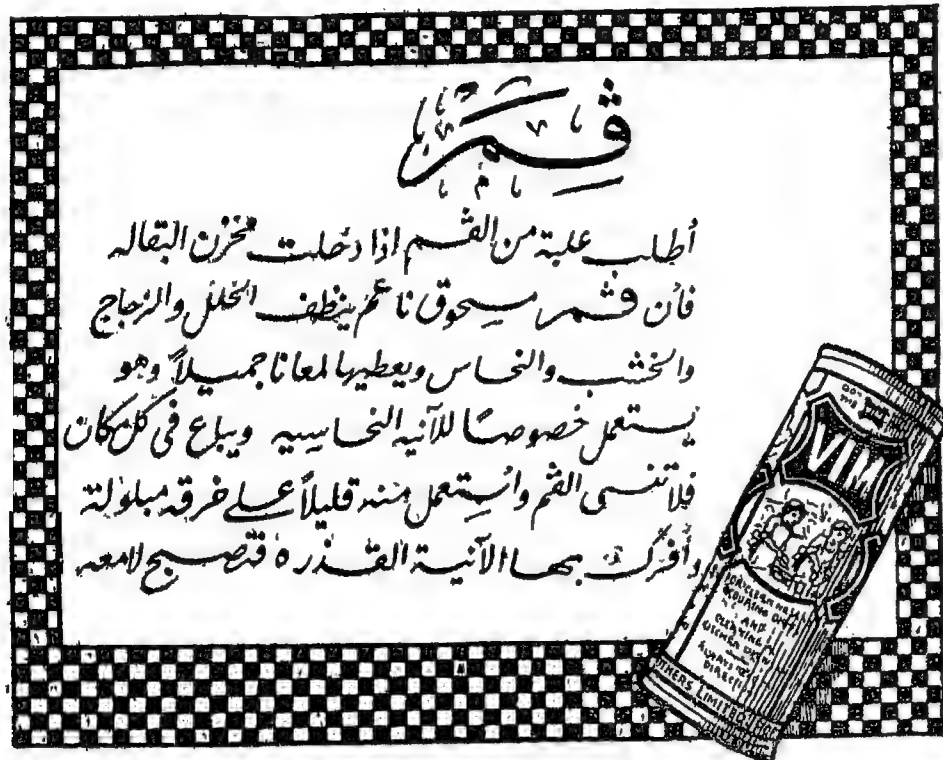 ڤـمر
أطلب علبة من الڤـم اذا دخلت مخزن البقاله
فأن ڤـمر مسحوق ناعم ينظف الخلل والزجاج
والخشب والنحاس ويعطيها لمعانا جميلاً وهو
يستعمل خصوصاً للآنيه النحاسيه ويباع في كل مكان
فلا تنسى الڤم وأستعمل منه قليلاً على خرقه مبلولة
وأفرك بها الآنية القذره فتصبح لامعه
VIM
FOR CLEANING
SCOURING
AND
ALWAYS
LIMITED